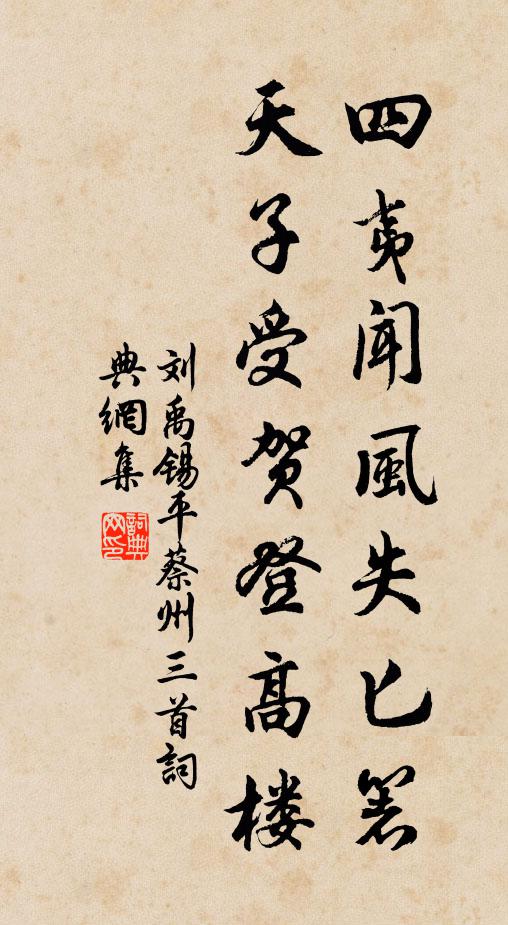 四夷闻風失匕箸
天子受贺登高楼
刘禹锡平蔡州三首詞
典網集
詞典
网印